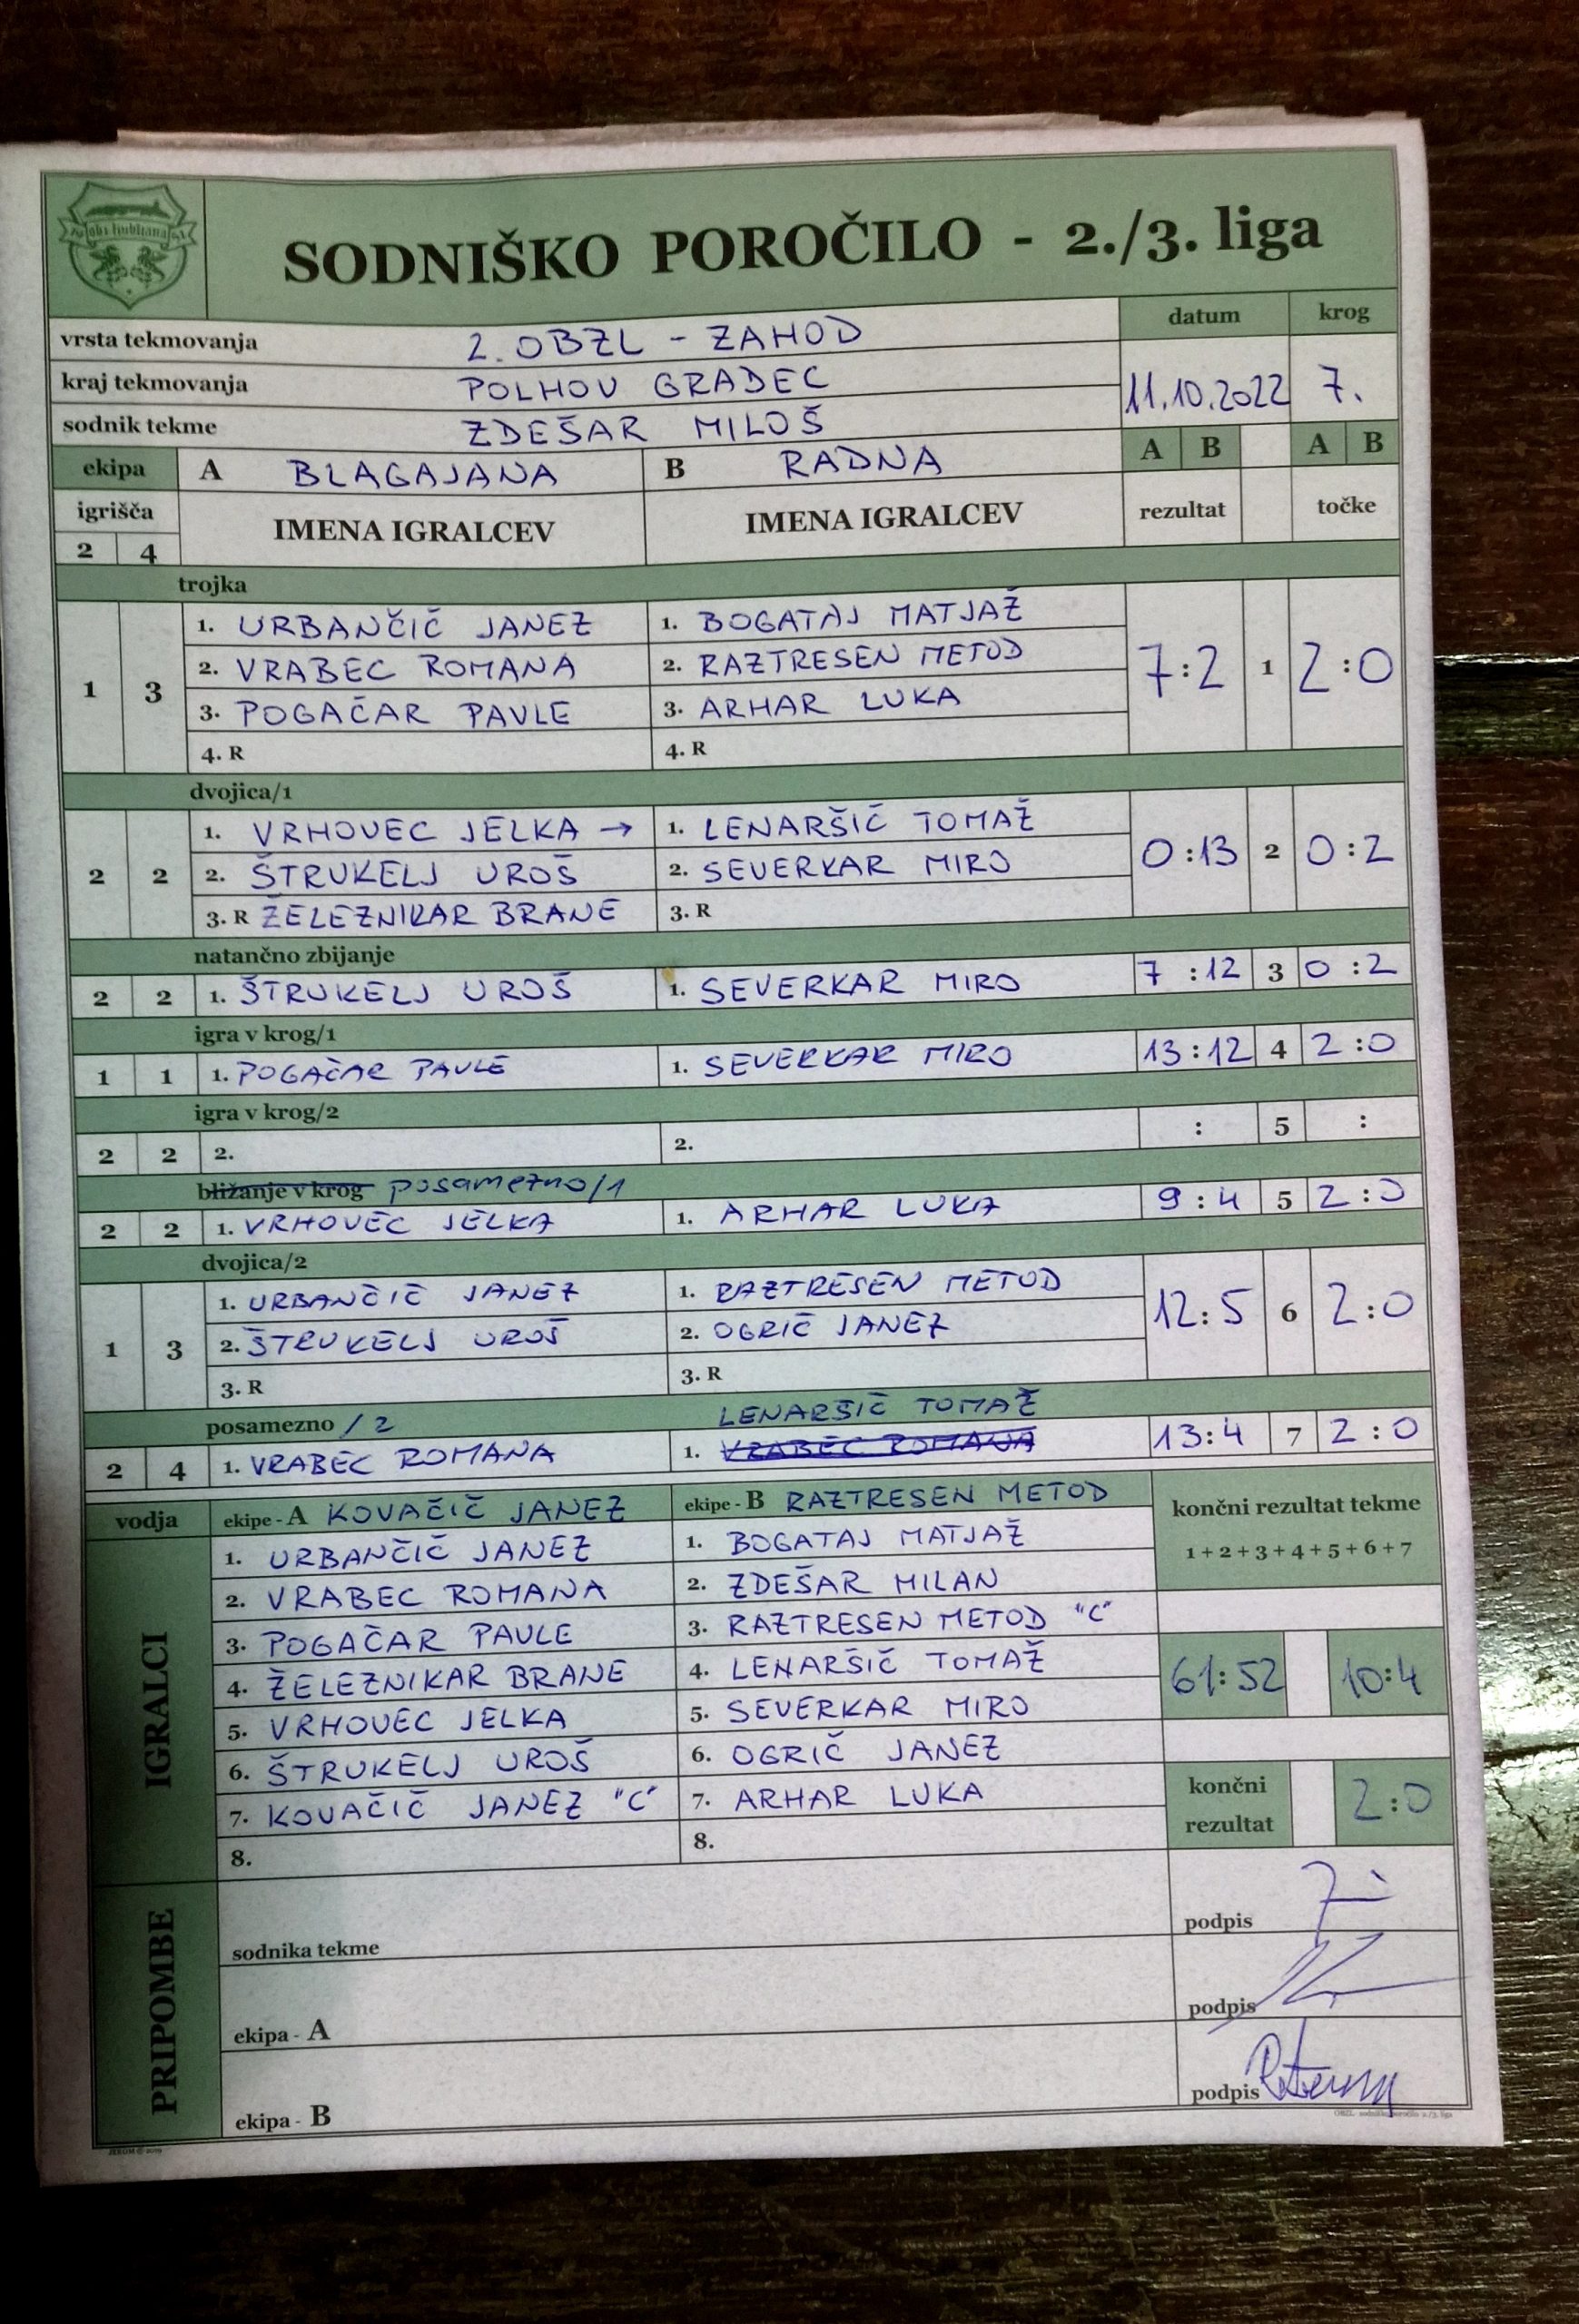 obz ljubljana
SODNIŠKO POROČILO - 2./3. liga
vrsta tekmovanja 2. OBZL - ZAHOD datum krog
kraj tekmovanja POLHOV GRADEC 11.10.2022 7.
sodnik tekme ZDEŠAR MILOŠ
ekipa A BLAGAJANA B RADNA A B A B
igrišča IMENA IGRALCEV IMENA IGRALCEV rezultat točke
2 4
trojka
1. URBANČIČ JANEZ 1. BOGATAJ MATJAŽ
1 3 2. VRABEC ROMANA 2. RAZTRESEN METOD 7:2 1 2:0
3. POGAČAR PAVLE 3. ARHAR LUKA
4. R 4. R
dvojica/1
1. VRHOVEC JELKA → 1. LENARŠIČ TOMAŽ
2 2 2. ŠTRUKELJ UROŠ 2. SEVERKAR MIRO 0:13 2 0:2
3. R ŽELEZNIKAR BRANE 3. R
natančno zbijanje
2 2 1. ŠTRUKELJ UROŠ 1. SEVERKAR MIRO 7:12 3 0:2
igra v krog/1
1 1 1. POGAČAR PAVLE 1. SEVERKAR MIRO 13:12 4 2:0
igra v krog/2
2 2 2. 2. : 5 :
bližanje v krog posamezno/1
2 2 1. VRHOVEC JELKA 1. ARHAR LUKA 9:4 5 2:0
dvojica/2
1. URBANČIČ JANEZ 1. RAZTRESEN METOD
1 3 2. ŠTRUKELJ UROŠ 2. OGRIČ JANEZ 12:5 6 2:0
3. R 3. R
posamezno /2 LENARŠIČ TOMAŽ
2 4 1. VRABEC ROMANA 1. VRABEC ROMANA 13:4 7 2:0
vodja ekipe - A KOVAČIČ JANEZ ekipe - B RAZTRESEN METOD končni rezultat tekme
1+2+3+4+5+6+7
IGRALCI
1. URBANČIČ JANEZ 1. BOGATAJ MATJAŽ
2. VRABEC ROMANA 2. ZDEŠAR MILAN
3. POGAČAR PAVLE 3. RAZTRESEN METOD "C"
4. ŽELEZNIKAR BRANE 4. LENARŠIČ TOMAŽ 61:52 10:4
5. VRHOVEC JELKA 5. SEVERKAR MIRO
6. ŠTRUKELJ UROŠ 6. OGRIČ JANEZ
7. KOVAČIČ JANEZ "C" 7. ARHAR LUKA končni rezultat 2:0
8. 8.
PRIPOMBE
sodnika tekme podpis
ekipa - A podpis
ekipa - B podpis